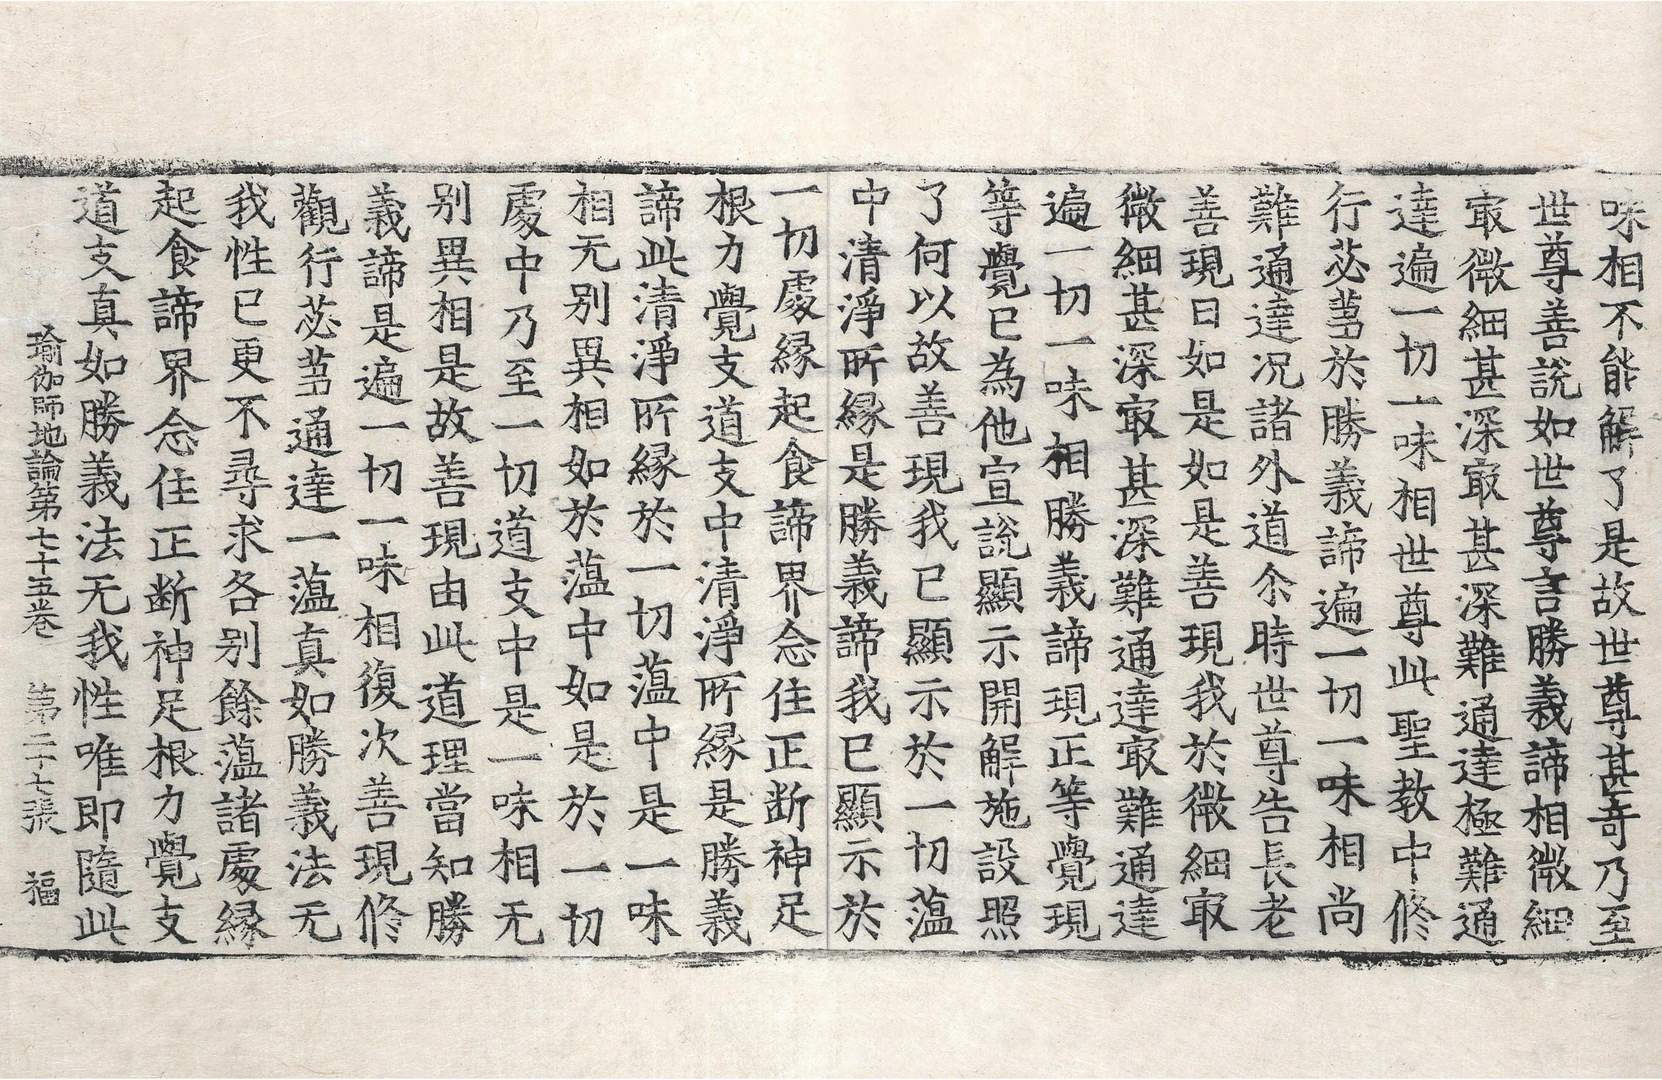 味相不能解了是故世尊甚奇乃至
世尊善說如世尊言勝義諦相微細
㝡微細甚深㝡甚深難通達極難通
達遍一切一味相世尊此聖教中修
行苾蒭於勝義諦遍一切一味相尚
難通達况諸外道尒時世尊告長老
善現曰如是如是善現我於微細㝡
微細甚深㝡甚深難通達㝡難通達
遍一切一味相勝義諦現正等覺現
等覺已為他宣說顯示開解施設照
了何以故善現我已顯示於一切蕰
中清淨所縁是勝義諦我已顯示於
一切處縁起食諦界念住正断神足
根力覺支道支中清淨所縁是勝義
諦此清淨所縁於一切蕰中是一味
相无别異相如於蕰中如是於一切
處中乃至一切道支中是一味相无
别異相是故善現由此道理當知勝
義諦是遍一切一味相復次善現修
觀行苾蒭通達一蕰真如勝義法无
我性已更不尋求各别餘蕰諸處縁
起食諦界念住正断神足根力覺支
道支真如勝義法无我性唯即隨此
瑜伽師地論第七十五卷 第二十七張 福